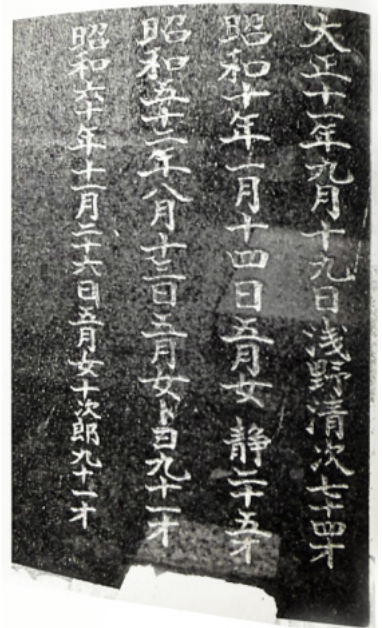 大正十一年九月十九日浅野清次七十四才
昭和十年一月十四日五月女 静二十五才
昭和五十二年八月十三日五月女トヨ九十一才
昭和六十年十一月二十六日五月女十次郎九十一才